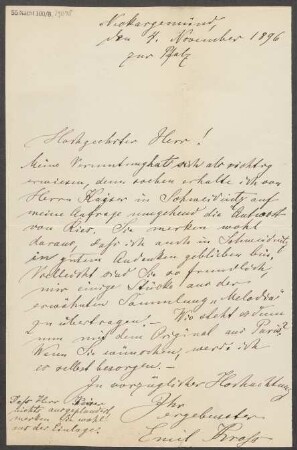 Neckargemünd,
den 4. November 1896
zur Pfalz
Hochgeehrter Herr!
Meine Vermutung hat sich als richtig
erwiesen, denn soeben erhalte ich von
Herrn Kaiser in Schweidnitz auf
meine Anfrage umgehend die Antwort
von hier. Sie merken wohl
daraus, daß ich auch in Schweidnitz
in gutem Andenken geblieben bin.
Vielleicht sind Sie so freundlich,
mir einige Stücke aus der
erwähnten Sammlung „Melodia"
zu übertragen. Wie steht es denn
nun mit dem Original aus Paris?
Wenn Sie wünschen, werde ich
es selbst besorgen.
In vorzüglicher Hochachtung
Ihr
ergebenster
Emil
Daß Herr
nichts
merken Sie wohl
aus der Einlage.